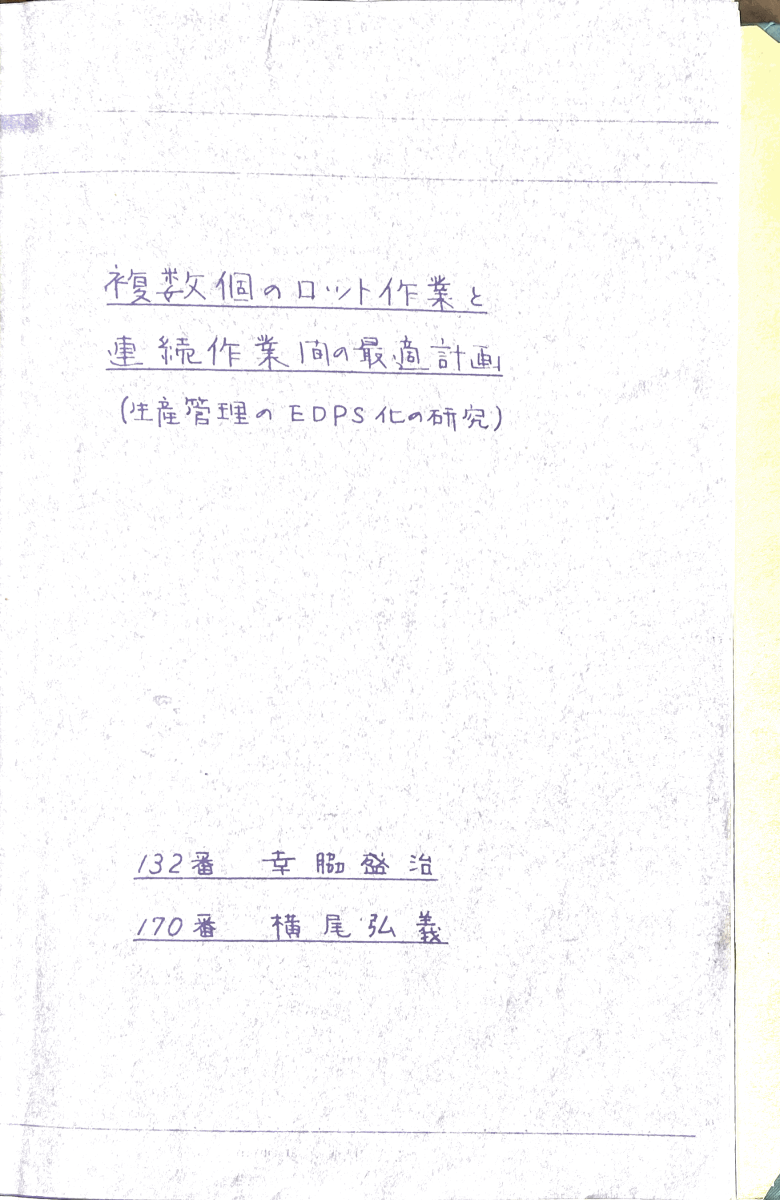 複数個のロット作業と
連続作業間の最適計画
(生産管理のEDPS化の研究)
132番 幸脇盛治
170番 横尾弘義